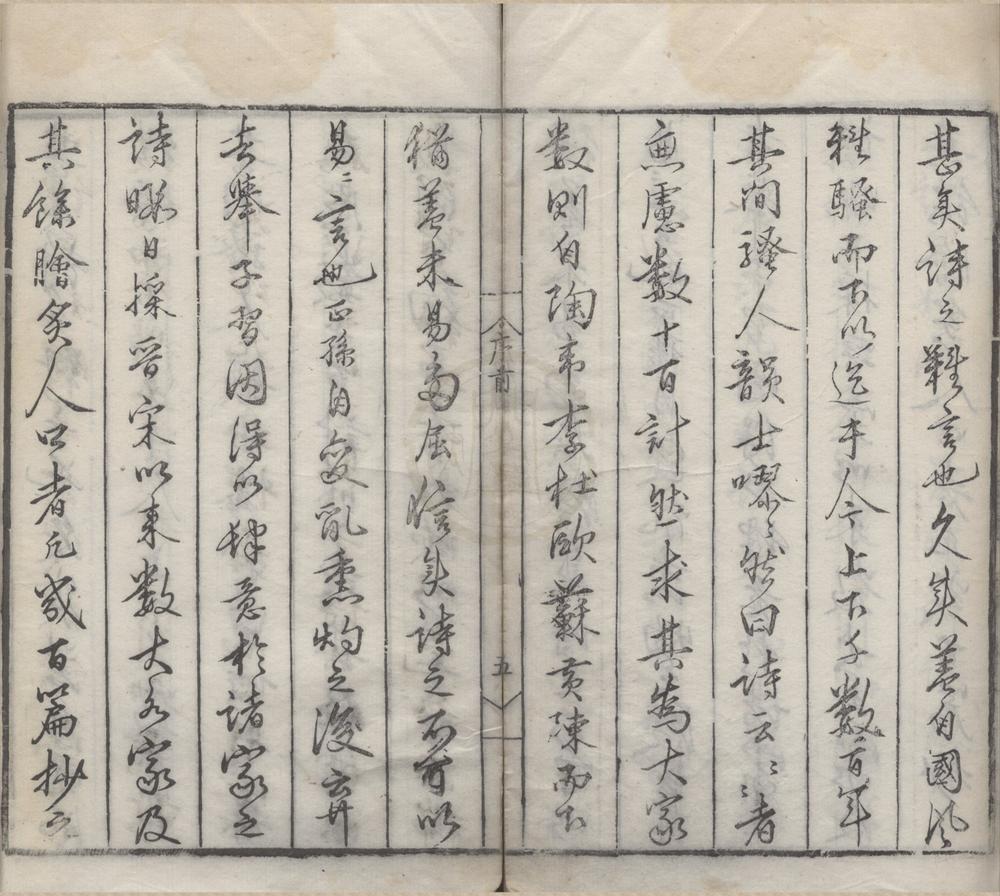 甚矣詩之難言也久矣蓋自國風
離騷而下以迄于今上下千數百年
其間騷人韻士嘐〻然曰詩云〻者
無慮數十百計然求其為大家
數則自陶韋李杜歐蘇黃陳而下
猶蓋未易屈信矣詩之不可以
易〻言也正孫自變亂熏灼之後棄
去舉子習因得以肆意於諸家之
詩暇日採晉宋以來數大名家及
其餘膾炙人口者凡幾百篇抄之
序首
五